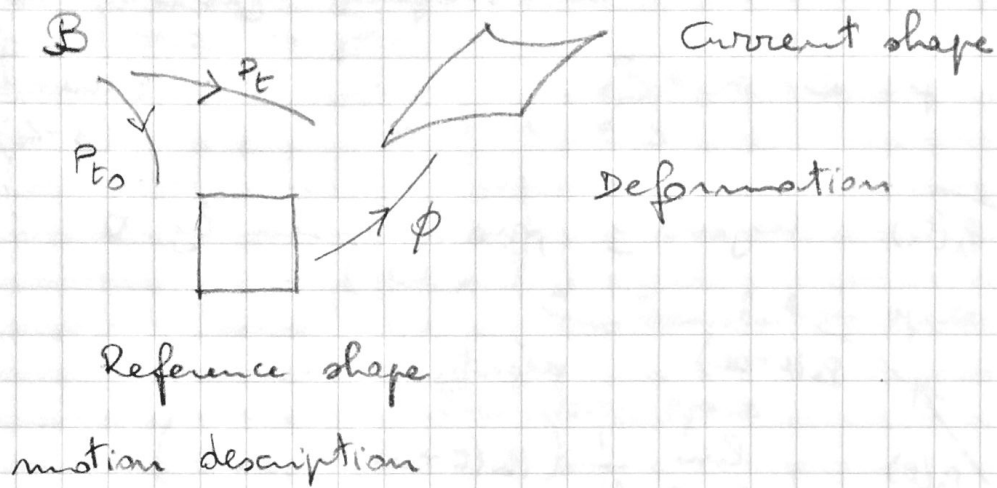 B
Current shape
P_t
P_t0
Deformation
ϕ
Reference shape
motion description